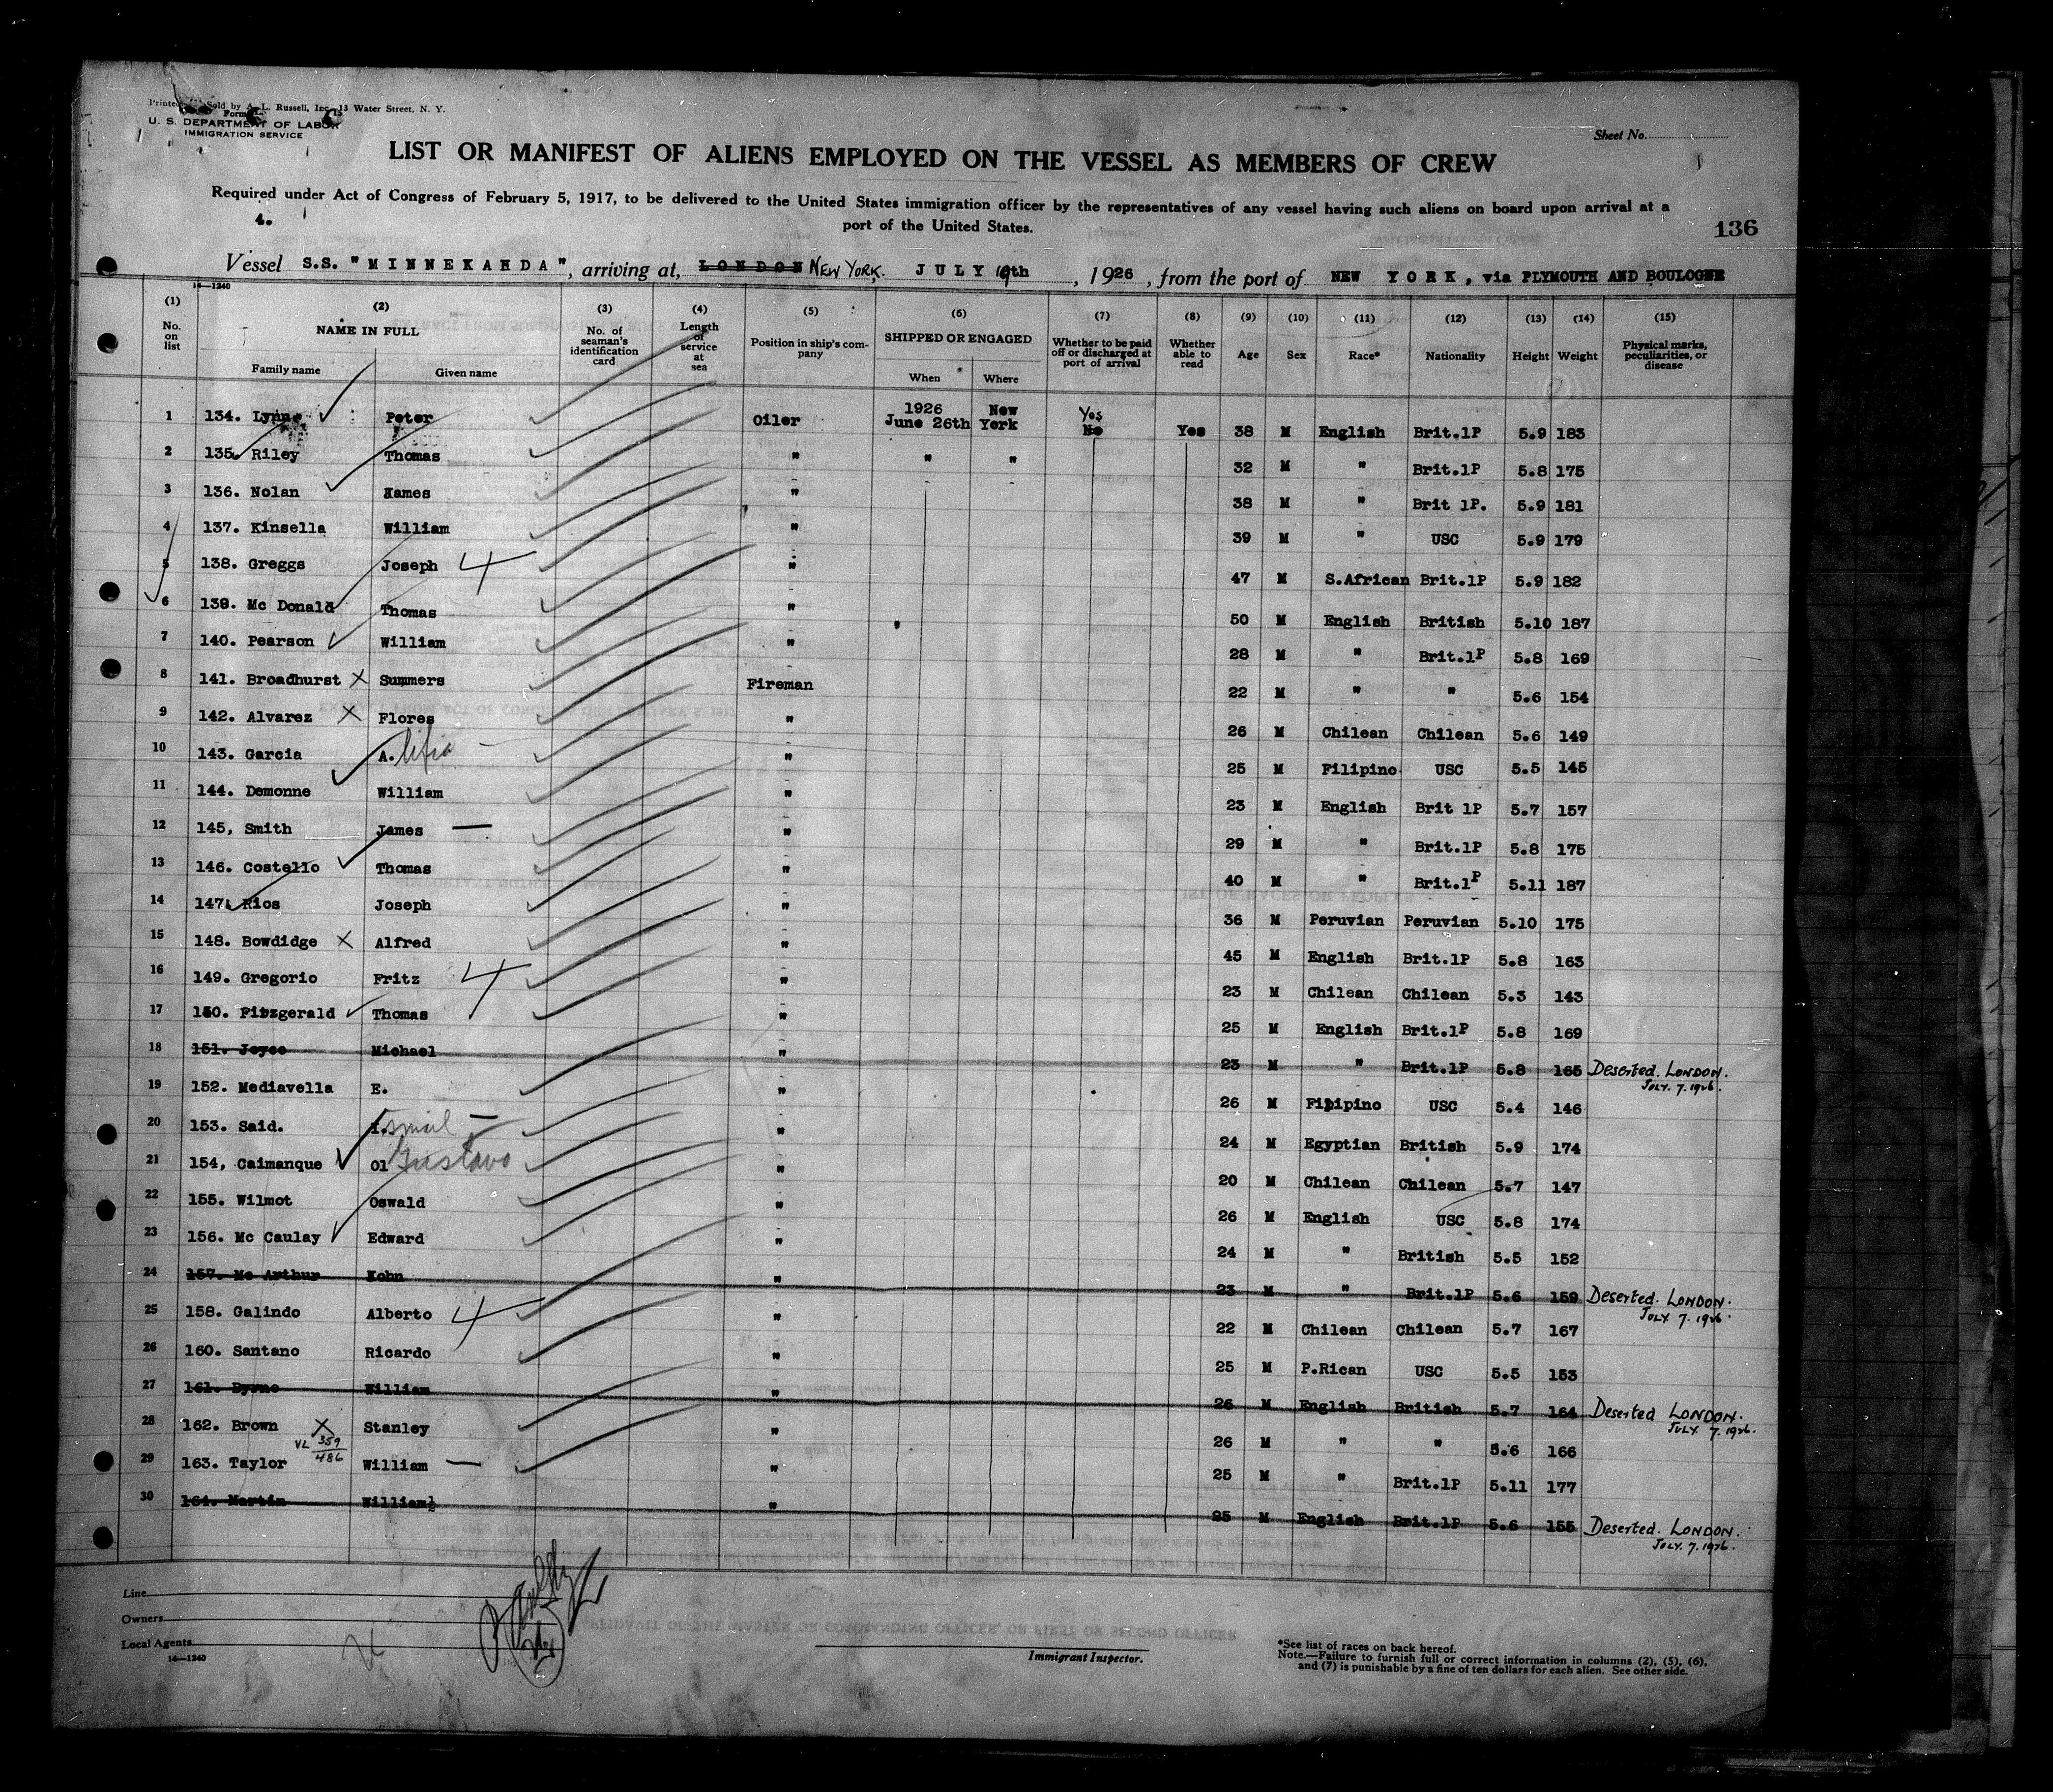 Sold by A. L. Russell, Inc. 13 Water Street, N. Y.
Form
U. S. DEPARTMENT OF LABOR
IMMIGRATION SERVICE
Sheet No.
LIST OR MANIFEST OF ALIENS EMPLOYED ON THE VESSEL AS MEMBERS OF CREW
Required under Act of Congress of February 5, 1917, to be delivered to the United States immigration officer by the representatives of any vessel having such aliens on board upon arrival at a
port of the United States.
4.
136
Vessel S.S. "MINNEKAHDA", arriving at, LONDON NEW YORK, JULY 19th, 1926, from the port of NEW YORK, via PLYMOUTH AND BOULOGNE
14—1240
(1) No. on list (2) NAME IN FULL Family name Given name (3) No. of seaman's identification card (4) Length of service at sea (5) Position in ship's company (6) SHIPPED OR ENGAGED When Where (7) Whether to be paid off or discharged at port of arrival (8) Whether able to read (9) Age (10) Sex (11) Race* (12) Nationality (13) Height (14) Weight (15) Physical marks, peculiarities, or disease
1 134. Lynn Peter Oiler 1926 June 26th New York Yes No Yes 38 M English Brit.1P 5.9 183
2 135. Riley Thomas " " " 32 M " Brit.1P 5.8 175
3 136. Nolan Xames " 38 M " Brit 1P. 5.9 181
4 137. Kinsella William " 39 M " USC 5.9 179
5 138. Greggs Joseph " 47 M S.African Brit.1P 5.9 182
6 139. Mc Donald Thomas " 50 M English British 5.10 187
7 140. Pearson William " 28 M " Brit.1P 5.8 169
8 141. Broadhurst X Summers Fireman 22 M " " 5.6 154
9 142. Alvarez X Flores " 26 M Chilean Chilean 5.6 149
10 143. Garcia A. " 25 M Filipino USC 5.5 145
11 144. Demonne William " 23 M English Brit 1P 5.7 157
12 145, Smith James " 29 M " Brit.1P 5.8 175
13 146. Costello Thomas " 40 M " Brit.1P 5.11 187
14 147. Rios Joseph " 36 M Peruvian Peruvian 5.10 175
15 148. Bowdidge X Alfred " 45 M English Brit.1P 5.8 163
16 149. Gregorio Fritz " 23 M Chilean Chilean 5.3 143
17 150. Fitzgerald Thomas " 25 M English Brit.1P 5.8 169
18 151. Joyce Michael " 23 M " Brit.1P 5.8 165 Deserted. LONDON. JULY. 7. 1926.
19 152. Mediavella E. " 26 M Filipino USC 5.4 146
20 153. Said. Ismail " 24 M Egyptian British 5.9 174
21 154, Caimanque Ol Gustavo " 20 M Chilean Chilean 5.7 147
22 155. Wilmot Oswald " 26 M English USC 5.8 174
23 156. Mc Caulay Edward " 24 M " British 5.5 152
24 157. Mc Arthur Kohn " 23 M " Brit.1P 5.6 159 Deserted. LONDON. JULY 7. 1926.
25 158. Galindo Alberto " 22 M Chilean Chilean 5.7 167
26 160. Santano Ricardo " 25 M P.Rican USC 5.5 153
27 161. Byrne William " 26 M English British 5.7 164 Deserted LONDON. JULY 7. 1926.
28 162. Brown X Stanley " 26 M " " 5.6 166
VL 359/486
29 163. Taylor William " 25 M " Brit.1P 5.11 177
30 164. Martin William " 25 M English Brit.1P 5.6 155 Deserted. LONDON. JULY. 7. 1926.
Line
Owners
Local Agents
14—1240
Immigrant Inspector.
*See list of races on back hereof.
Note.—Failure to furnish full or correct information in columns (2), (5), (6),
and (7) is punishable by a fine of ten dollars for each alien. See other side.